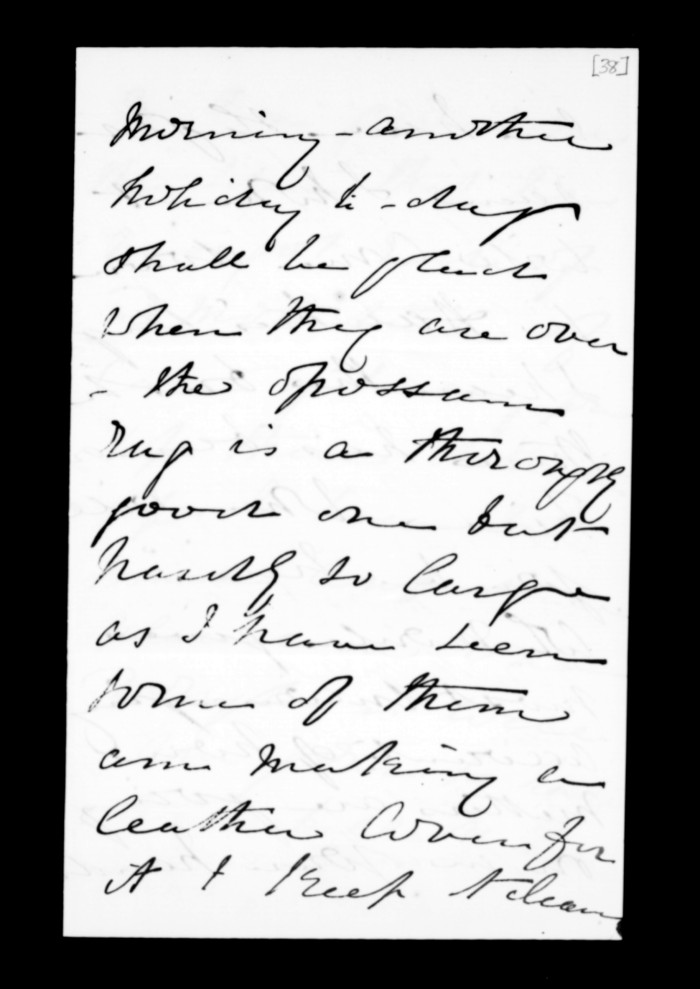 [38]
Morning - another
holiday to-day
shall be glad
when they are over
- the opossum
rug is a thoroughly
good one but
hardly so large
as I have seen
some of them
am making a
leather cover for
it & keep it clean